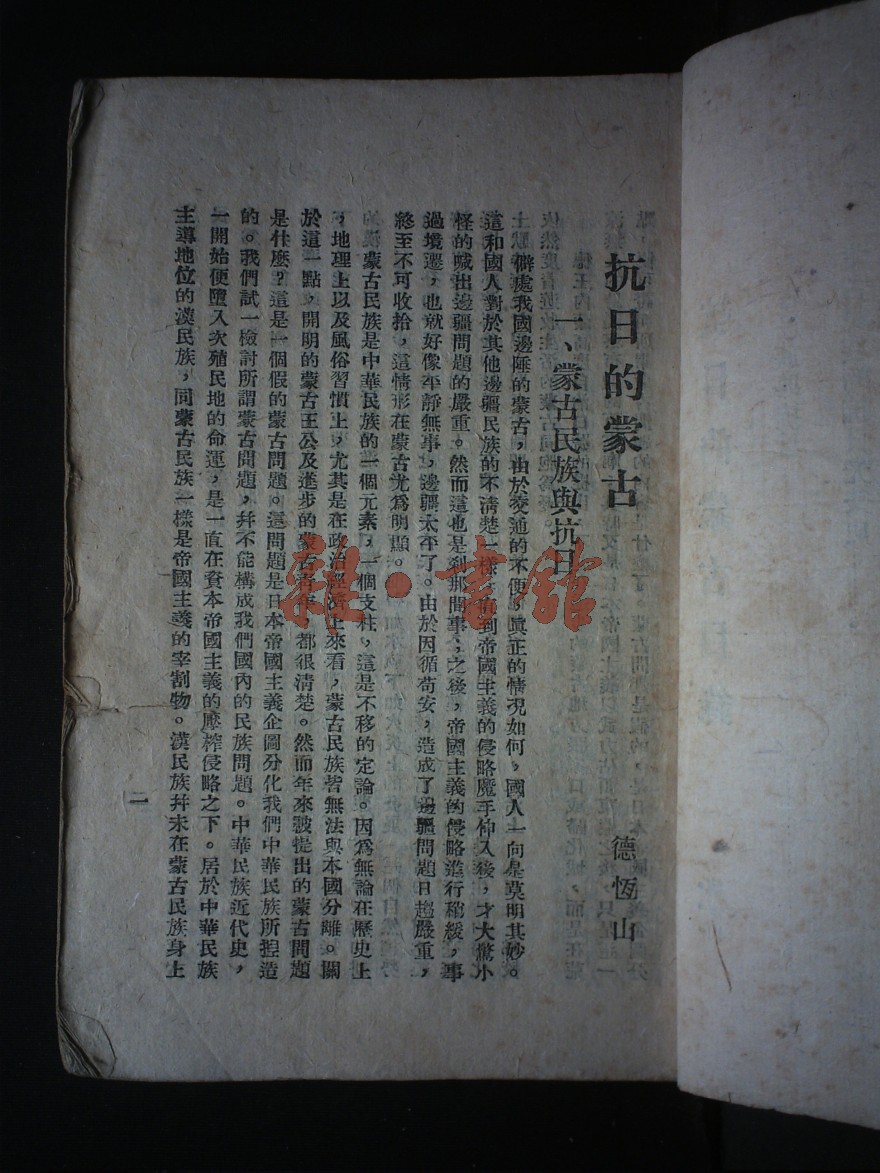 抗日的蒙古
德恆山
一、蒙古民族與抗日
僻處我國邊陲的蒙古，由於交通的不便，眞正的情況如何，國人一向是莫明其妙。
這和國人對於其他邊疆民族的不清楚一樣，直到帝國主義的侵略魔手伸入後，才大驚小
怪的喊出邊疆問題的嚴重。然而這也是刹那間事；之後，帝國主義的侵略進行稍緩，事
過境遷，也就好像平靜無事，邊疆太平了。由於因循苟安，造成了邊疆問題日趨嚴重，
終至不可收拾，這情形在蒙古尤爲明顯。
蒙古民族是中華民族的一個元素，一個支柱，這是不移的定論。因爲無論在歷史上
，地理上以及風俗習慣上，尤其是在政治經濟上來看，蒙古民族皆無法與本國分離。關
於這一點，開明的蒙古王公及進步的蒙古靑年，都很清楚。然而年來被提出的蒙古問題
是什麼？這是一個假的蒙古問題。這問題是日本帝國主義企圖分化我們中華民族所捏造
的。我們試一檢討所謂蒙古問題，幷不能構成我們國內的民族問題。中華民族近代史，
一開始便墮入次殖民地的命運，是一直在資本帝國主義的壓榨侵略之下。居於中華民族
主導地位的漢民族，同蒙古民族一樣是帝國主義的宰割物。漢民族幷未在蒙古民族身上
二
雜·書館